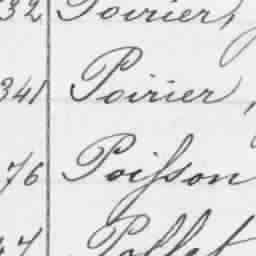 32 Poirier,
341 Poirier,
76 Poisson
47 Pollet